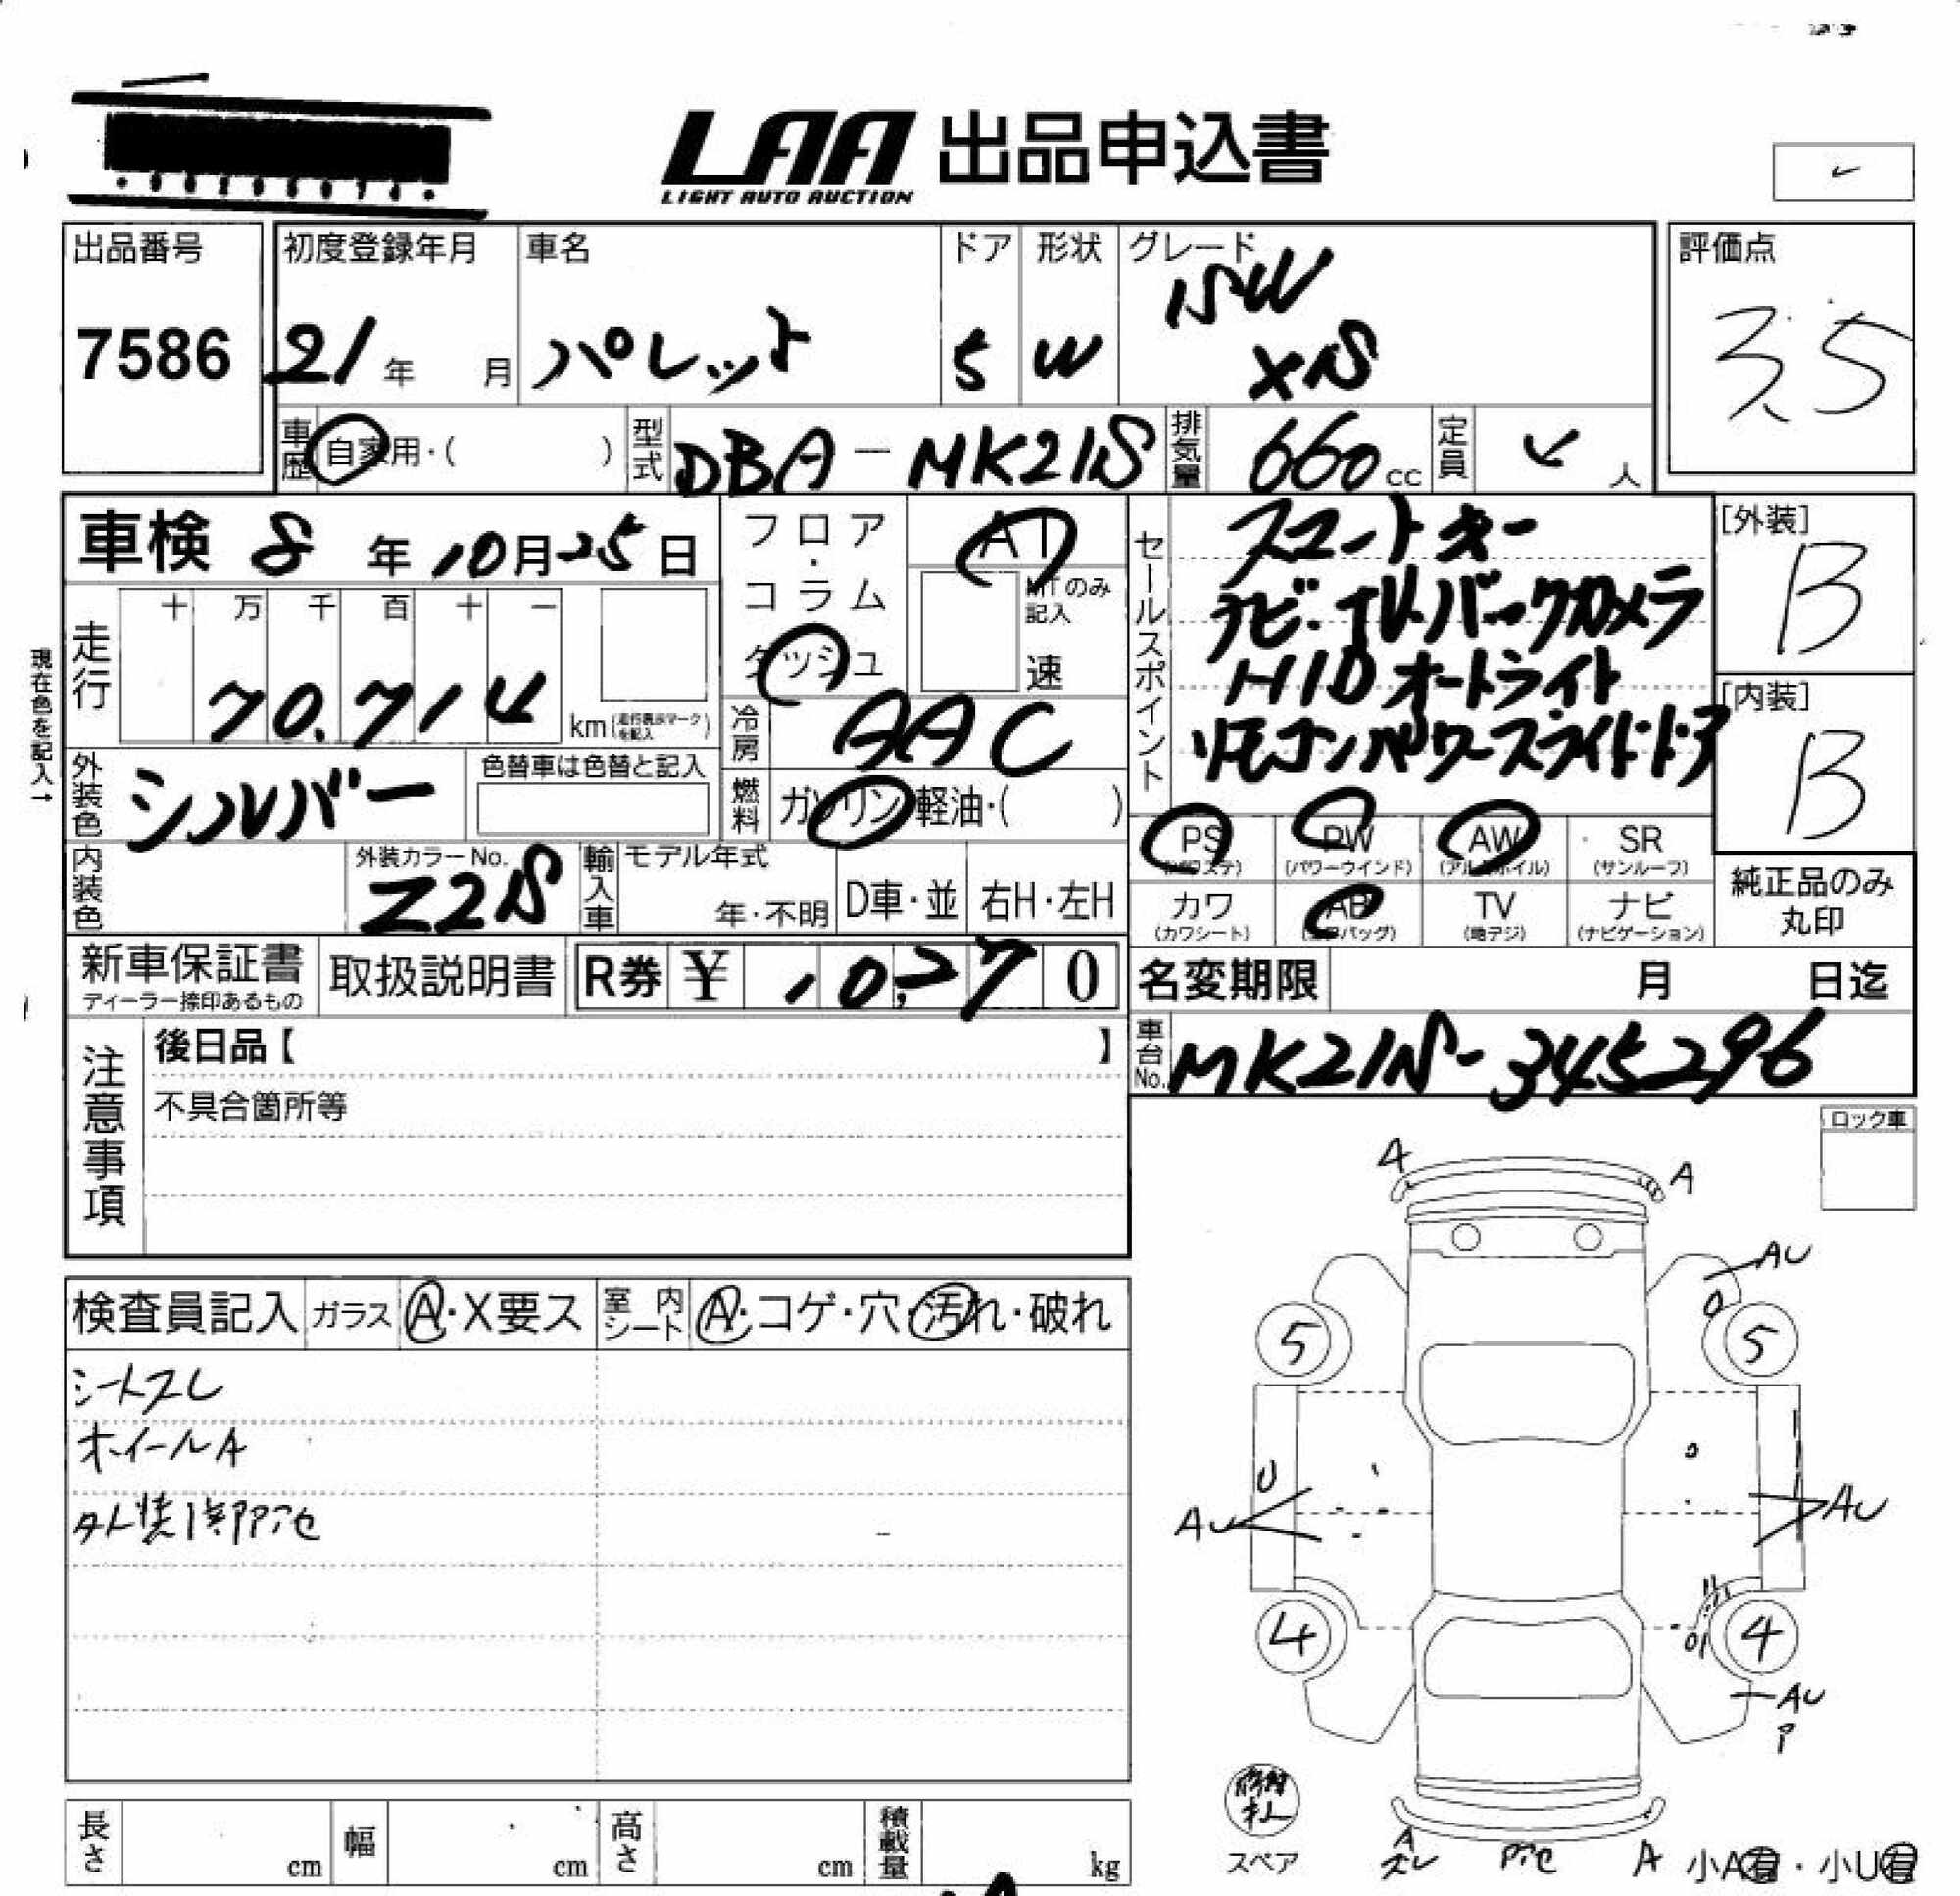 LAA 出品申込書
LIGHT AUTO AUCTION
出品番号 7586
初度登録年月 21年 月
車名 パレット
ドア 5
形状 W
グレード SW XS
評価点 3.5
車歴 自家用・( )
型式 DBA-MK21S
排気量 660cc
定員 4人
車検 8年10月25日
フロア・コラム ダッシュ
AT
MTのみ記入
速
セールスポイント
スマートキー
ナビ・TV・バックカメラ
HIDオートライト
リモコンパワースライドドア
[外装] B
[内装] B
現在色を記入→
走行 十 万 千 百 十 一
70.714 km(走行表示マークを記入)
冷房 AAC
外装色 シルバー
色替車は色替と記入
燃料 ガソリン・軽油・( )
PS (パワステ) PW (パワーウインド) AW (アルミホイル) SR (サンルーフ)
カワ (カワシート) AB (エアバッグ) TV (地デジ) ナビ (ナビゲーション)
純正品のみ丸印
内装色
外装カラーNo. Z2S
輸入車 モデル年式 年・不明
D車・並 右H・左H
新車保証書 ディーラー捺印あるもの
取扱説明書
R券 ¥ 10,270
名変期限 月 日迄
車台No. MK21S-345296
注意事項
後日品【 】
不具合箇所等
ロック車
検査員記入 ガラス A・X要ス 室内シート A・コゲ・穴・汚れ・破れ
シートスレ
ホイールA
外装1部アセ
A A
AU
5 5
U
AU AU
4 4
AU
P
修材キ
スペア
A ズレ アセ A
小A有・小U有
長さ cm 幅 cm 高さ cm 積載量 kg